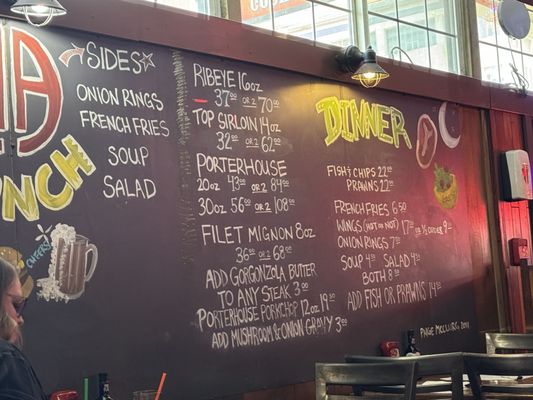 A
NCH
SIDES
ONION RINGS
FRENCH FRIES
SOUP
SALAD
CHEERS!
RIBEYE 16oz
37.00 OR 2 70.00
TOP SIRLOIN 14oz
32.00 OR 2 62.00
PORTERHOUSE
20oz 43.00 OR 2 84.00
30oz 56.00 OR 2 108.00
FILET MIGNON 8oz
36.00 OR 2 68.00
ADD GORGONZOLA BUTTER
TO ANY STEAK 3.00
PORTERHOUSE PORKCHOP 12oz 19.50
ADD MUSHROOM & ONION GRAVY 3.00
DINNER
FISH & CHIPS 22.00
PRAWNS 22.00
FRENCH FRIES 6.50
WINGS (HOT OR NOT) 17.00 OR 1/2 ORDER 9.00
ONION RINGS 7.00
SOUP 4.00 SALAD 4.00
BOTH 8.00
ADD FISH OR PRAWNS 14.00
PAIGE MCCLURG, 2011